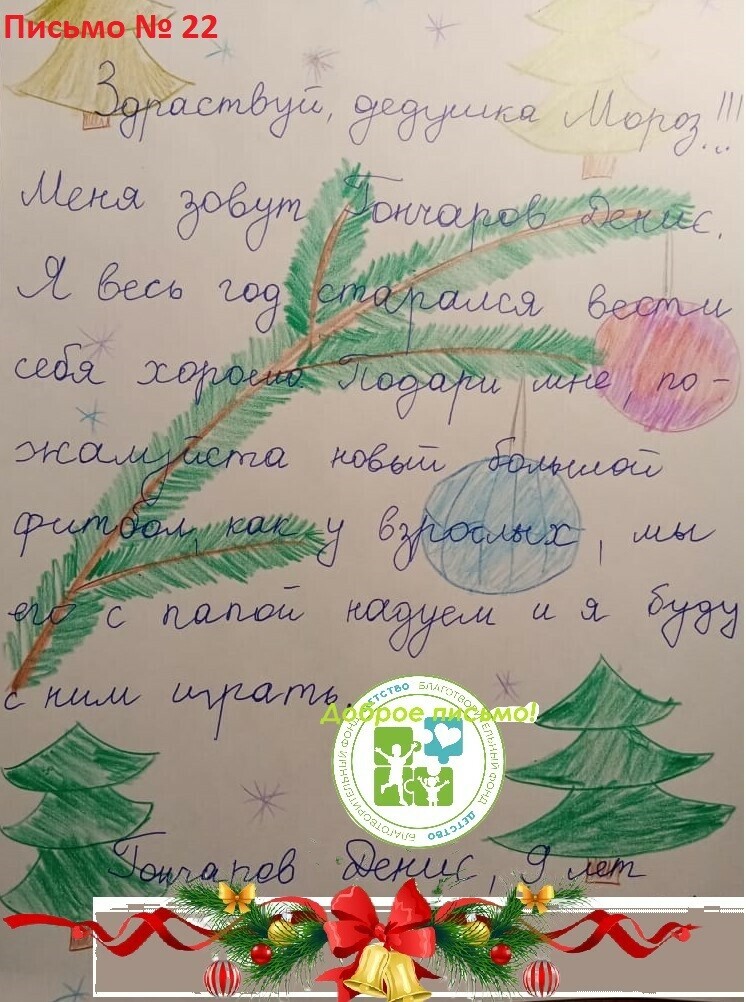 Письмо № 22
Здраствуй, дедушка Мороз!!!
Меня зовут Гончаров Денис.
Я весь год старался вести
себя хорошо. Подари мне, по-
жалуйста новый большой
фитбол, как у взрослых, мы
его с папой надуем и я буду
с ним играть.
Доброе письмо!
БЛАГОТВОРИТЕЛЬНЫЙ ФОНД ДЕТСТВО БЛАГОТВОРИТЕЛЬНЫЙ ФОНД ДЕТСТВО
Гончаров Денис, 9 лет